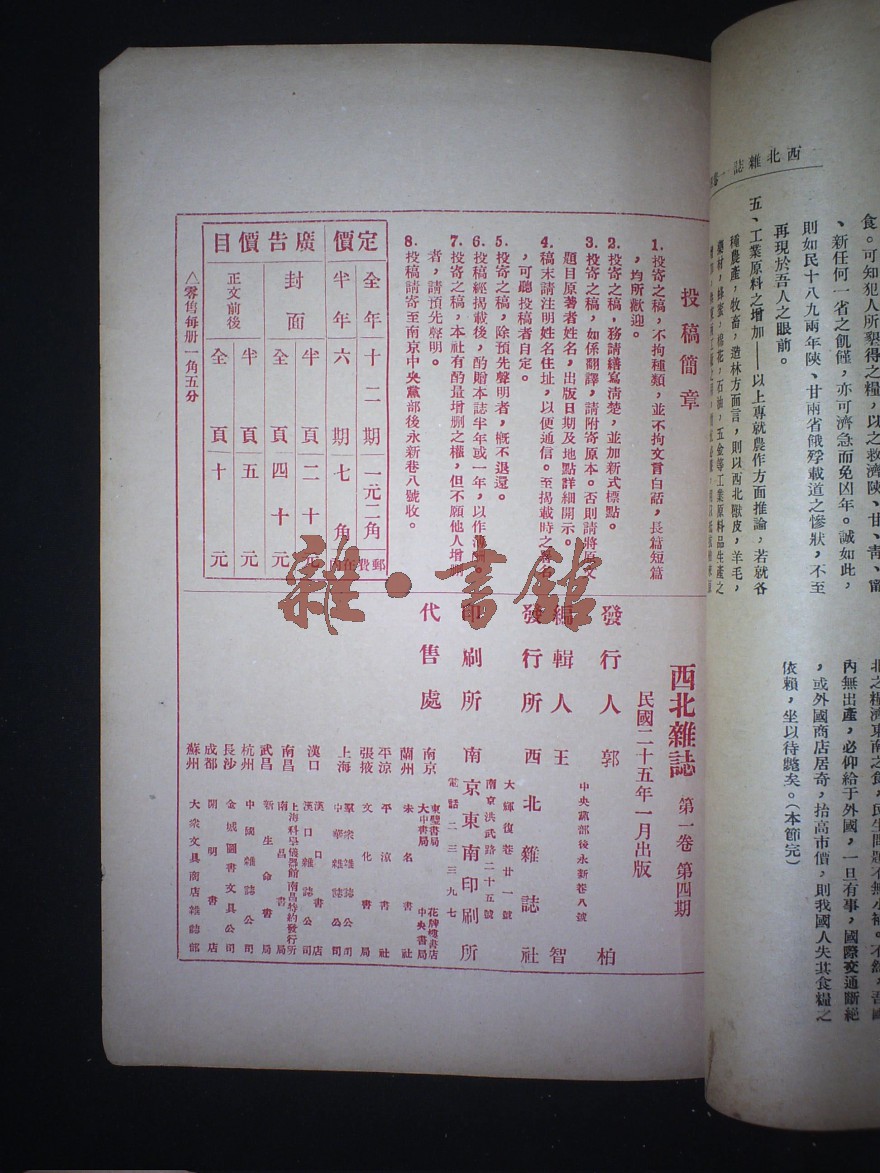 西北雜誌 一卷
食。可知犯人所墾得之糧，以之救濟陝、甘、青、甯
、新任何一省之飢饉，亦可濟急而免凶年。誠如此，
則如民十八九兩年陝、甘兩省餓殍載道之慘狀，不至
再現於吾人之眼前。
五、工業原料之增加——以上專就農作方面推論，若就各
種農產，牧畜，造林方面言，則以西北獸皮，羊毛，
藥材，蜂蜜，棉花，石油，五金等工業原料品生產之
北之糧濟東南之食，民生問題不無小補。不然，吾國
內無出產，必仰給于外國，一旦有事，國際交通斷絕
，或外國商店居奇，抬高市價，則我國人失其食糧之
依賴，坐以待斃矣。（本節完）
投稿簡章
1. 投寄之稿，不拘種類，並不拘文言白話，長篇短篇
，均所歡迎。
2. 投寄之稿，務請繕寫清楚，並加新式標點。
3. 投寄之稿，如係翻譯，請附寄原本。否則請將原文
題目原著者姓名，出版日期及地點詳細開示。
4. 稿末請注明姓名住址，以便通信。至揭載時之署名
，可聽投稿者自定。
5. 投寄之稿，除預先聲明者，概不退還。
6. 投稿經揭載後，酌贈本誌半年或一年，以作酬
7. 投寄之稿，本社有酌量增刪之權，但不願他人增刪
者，請預先聲明。
8. 投稿請寄至南京中央黨部後永新巷八號收。
定價
全年十二期一元二角
半年六期七角
郵費在內
廣告價目
封面
半頁二十元
全頁四十元
正文前後
半頁五元
全頁十元
△零售每册一角五分
西北雜誌 第一卷 第四期
民國二十五年一月出版
發行人 郭柏
中央黨部後永新巷八號
編輯人 王智
大輝復巷廿一號
發行所 西北雜誌社
南京洪武路二十五號
印刷所 南京東南印刷所
電話二三三九七
代售處
南京 東璧書局 花牌樓書店
大中書局 中央書局
蘭州 朱名書社
平涼 平涼書社
張掖 文化書局
上海 羣眾雜誌公司
中華雜誌公司
漢口 漢口書店
漢口雜誌公司
南昌 上海科學儀器館南昌特約發行所
南昌書局
武昌 新生命書局
杭州 中國雜誌公司
長沙 金城圖書文具公司
成都 開明書店
蘇州 大眾文具商店雜誌部
雜·書館